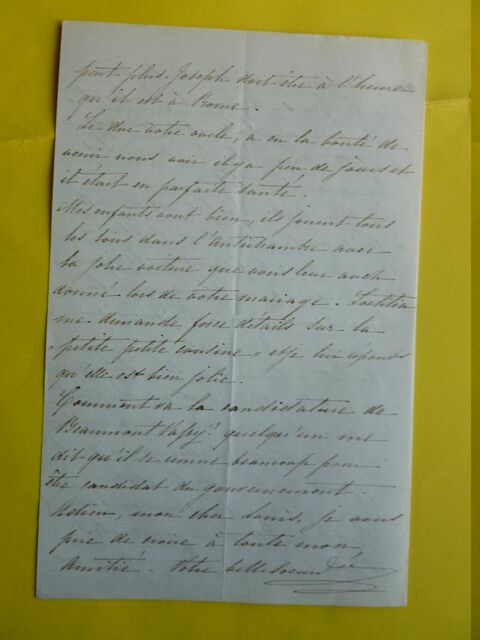 peut plus. Joseph doit être à l'heure
qu'il est à Rome.
Le duc votre oncle, a eu la bonté de
venir nous voir il y a peu de jours et
il était en parfaite santé.
Mes enfants vont bien, ils jouent tous
les trois dans l'Antichambre avec
la jolie voiture que vous leur avez
donné lors de votre mariage. Loetitia
me demande force détails sur la
"petite petite cousine" et je lui réponds
qu'elle est bien jolie.
Comment va la candidature de
Beaumont Vassy? quelqu'un me
dit qu'il se remue beaucoup pour
être candidat du gouvernement.
Adieu, mon cher Louis, je vous
prie de croire à toute mon
Amitié. Votre belle Soeur